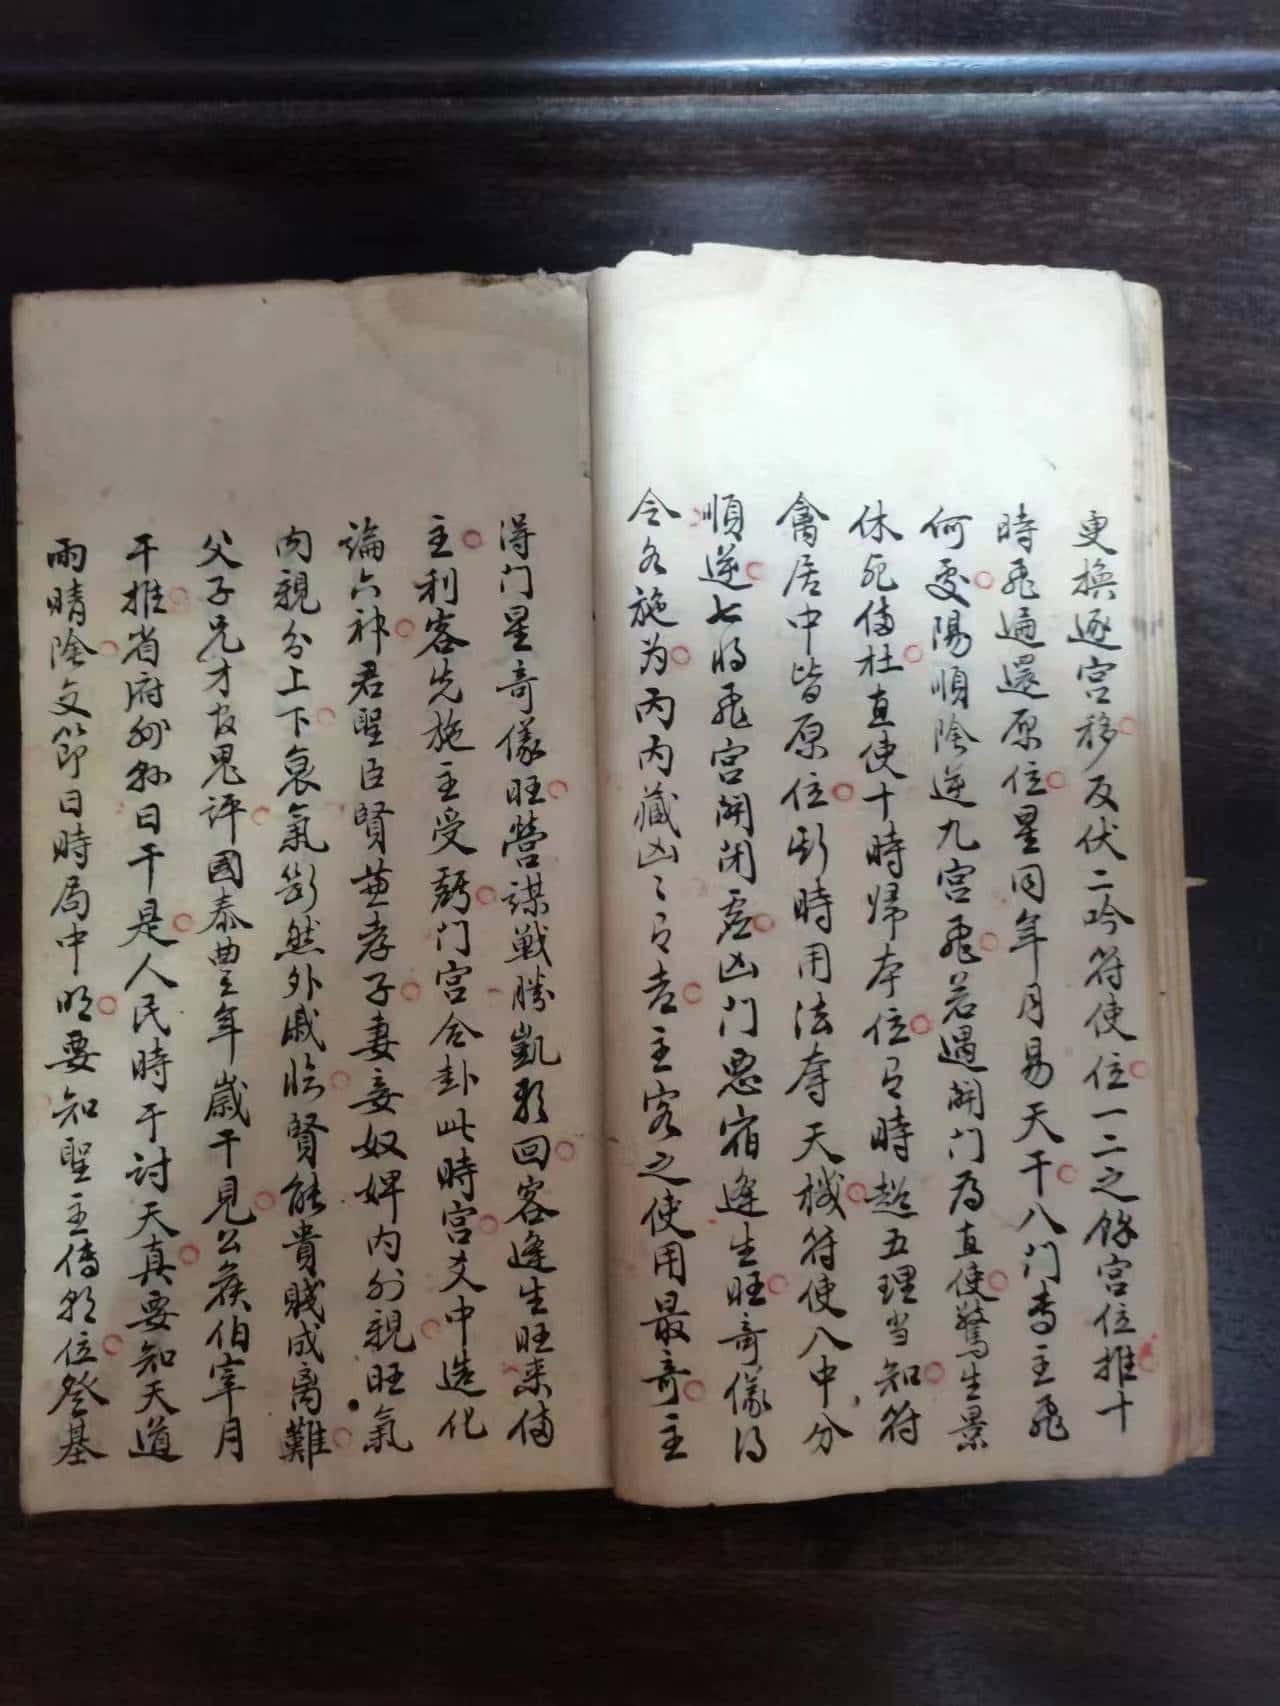 更換逐宮移反伏二吟符使位一二之餘宮位推十
時飛遍還原位星同年月易天干八门专主飛
何处陽順陰逆九宮飛若遇開门為直使驚生景
休死傷杜直使十時歸本位時超五理当知符
禽居中皆原位斯時用法奪天機符使八中分
順逆七将飛宮開闭凶门惡宿逢生旺奇儀得
令多施为丙内藏凶主客之使用最奇主
得门星奇儀旺營謀戦勝凱歌回客逢生旺来傷
主利客先施主受虧门宮合卦此時宮爻中造化
論六神君聖臣賢并孝子妻妾奴婢内外親旺氣
肉親分上下衰氣然外戚臨賢能貴賤成离難
父子兄才官鬼評國泰豊年歲干見公侯伯宰月
干推省府州縣日干是人民時干討天真要知天道
雨晴陰交節日時局中明要知聖主傳位登基